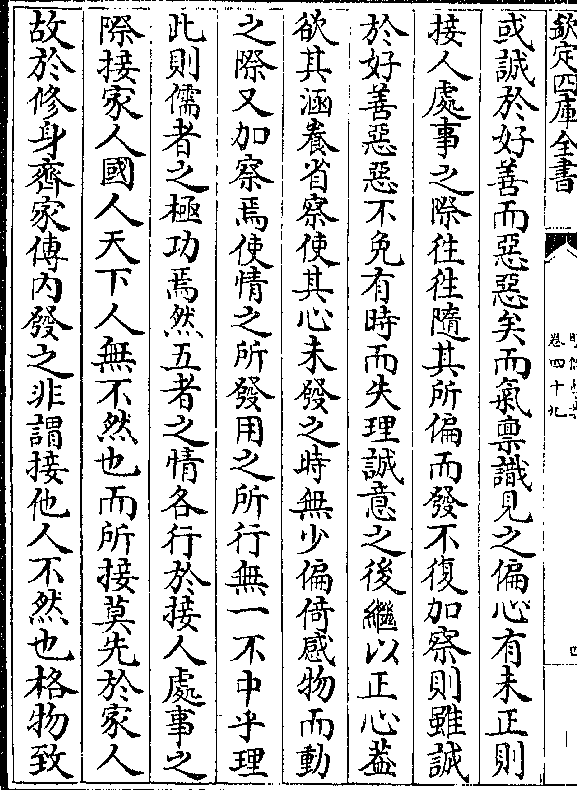 欽定四庫全書
卷四十九
或誠於好善而惡惡矣而氣禀識見之偏心有未正則
接人處事之際往往隨其所偏而發不復加察則雖誠
於好善惡惡不免有時而失理誠意之後繼以正心葢
欲其涵養省察使其心未發之時無少偏倚感物而動
之際又加察焉使情之所發用之所行無一不中乎理
此則儒者之極功焉然五者之情各行於接人處事之
際接家人國人天下人無不然也而所接莫先於家人
故於修身齊家傳内發之非謂接他人不然也格物致